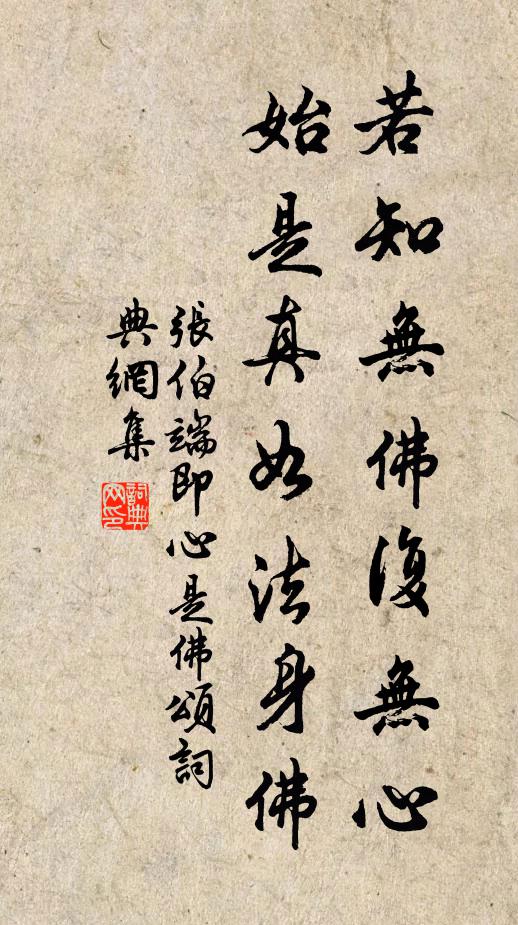 若知無佛復無心
始是真如法身佛
張伯端即心是佛頌詞
典網集
詞典
网印